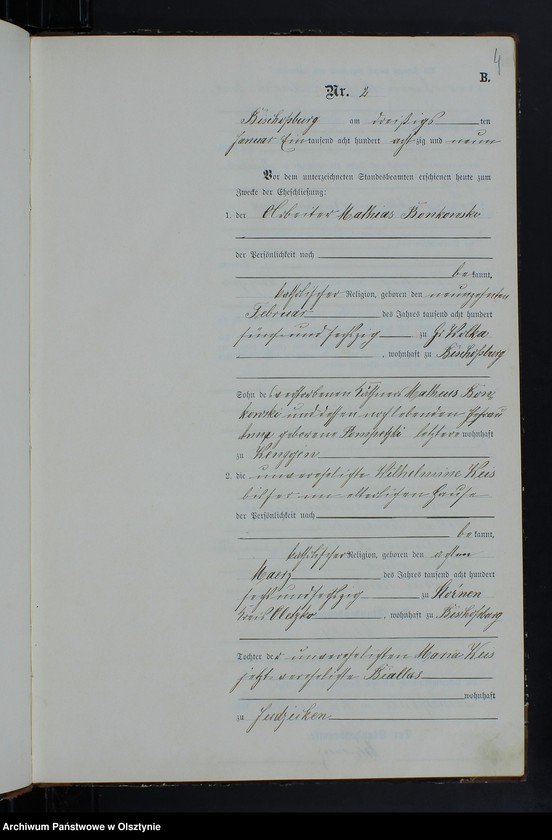 4
B.
Nr. 2
Bischofsburg am dreißigs ten
Januar Ein tausend acht hundert acht zig und neun
Vor dem unterzeichneten Standesbeamten erschienen heute zum
Zwecke der Eheschließung:
1. der Arbeiter Matheus Konkowski
der Persönlichkeit nach
be kannt,
katholischer Religion, geboren den neunzehnten
Februar des Jahres tausend acht hundert
fünf und sechzig zu Gr Wolka
, wohnhaft zu Bischofsburg
Sohn des verstorbenen Käthner Matheus Kon
kowski und dessen noch lebenden Ehefrau
Anna geborene letztere wohnhaft
zu Lenggen
2. die unverehelichte Wilhelmine Keis
bisher im elterlichen Hause
der Persönlichkeit nach
be kannt,
katholischer Religion, geboren den achten
Maerz des Jahres tausend acht hundert
sechs und sechszig zu
Kreis Oletzko , wohnhaft zu Bischofsburg
Tochter der unverehelichten Maria Keis
jetzt verehelichte Biallas
wohnhaft
zu
Archiwum Państwowe w Olsztynie